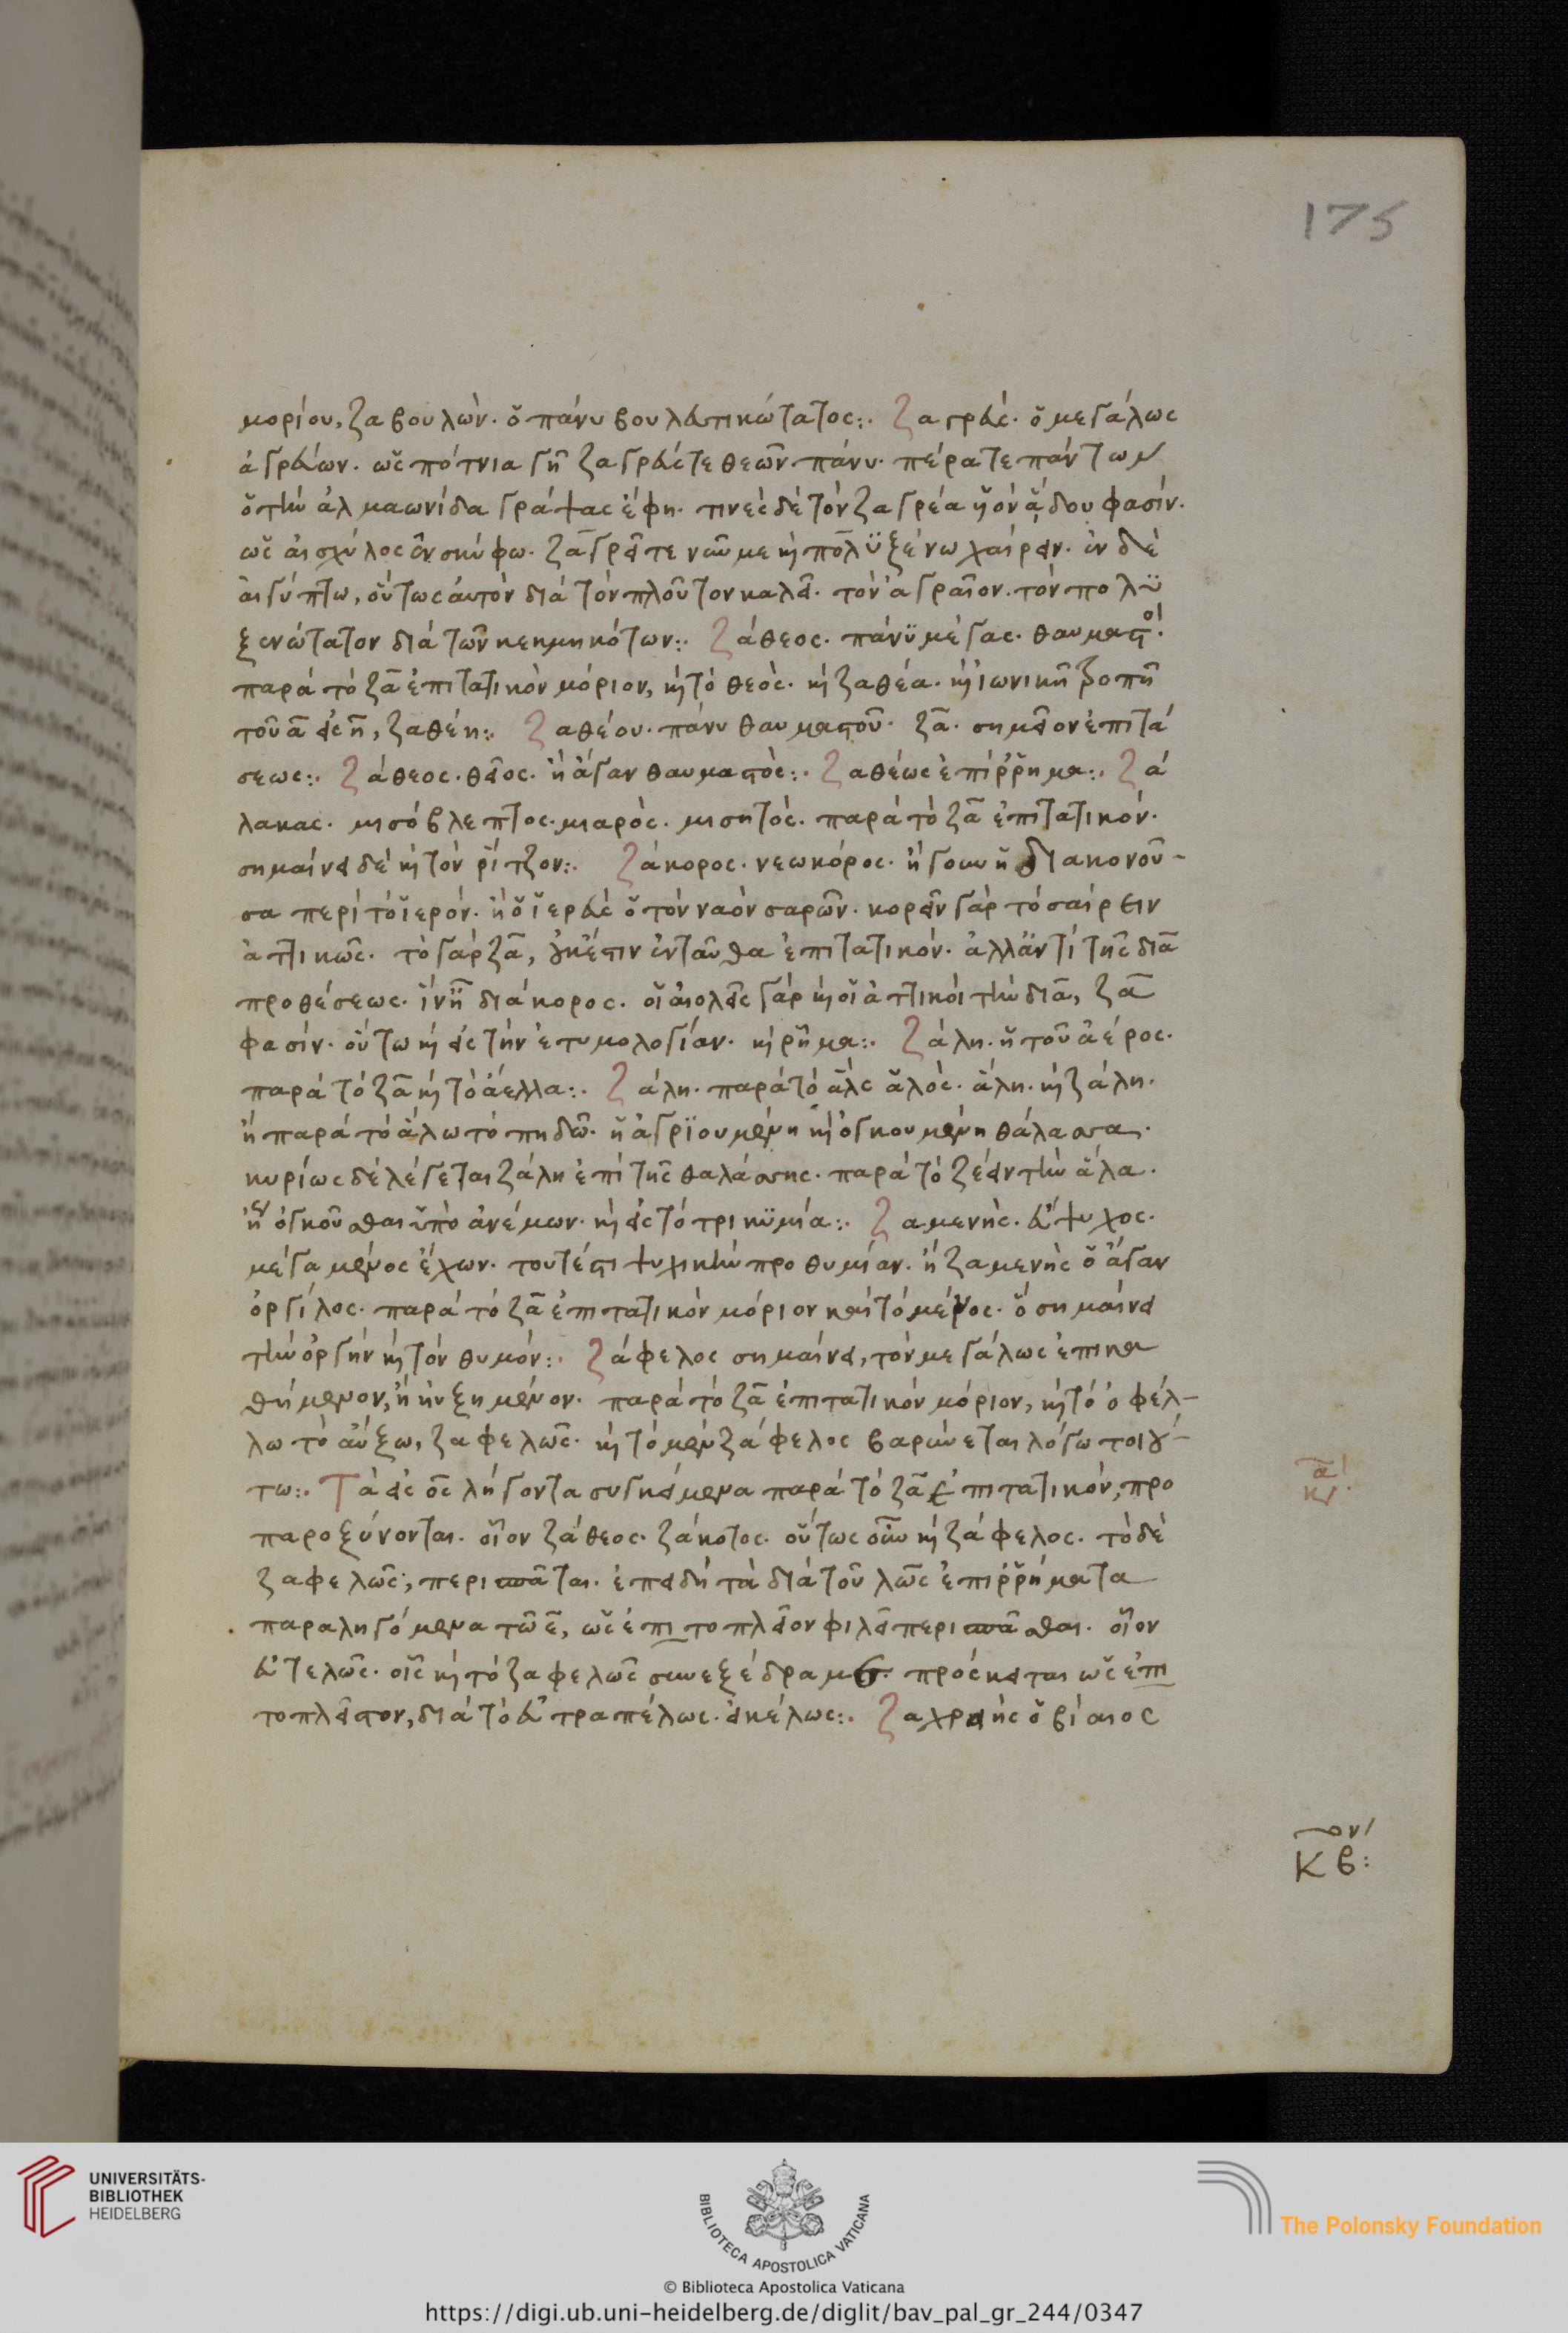 175
μορίου, ζαβουλὼν. ὁ πάνυ βουλευτικώτατος:. Ζαγρεὺς. ὁ μεγάλως
ἀγρεύων. ὡς πότνια γῆ ζαγρεῦτε θεῶν πάνυ. πέρατε πάντων
ὁ τὴν ἀλμαωνίδα γράψας ἔφη. τινὲς δὲ τὸν ζαγρέα υἱὸν ἅδου φασίν.
ὡς αἰσχύλος ἐν σισύφω. ζαγρεῖ τε νῦν με καὶ πολυξένω χαίρειν. ἐν δὲ
αἰγύπτω, οὕτως αὐτὸν διὰ τὸν πλοῦτον καλεῖ. τὸν ἀγραῖον. τὸν πολυ
ξενώτατον διὰ τῶν κεκμηκότων:. Ζάθεος. πάνυ μέγας. θαυμαστός.
παρὰ τὸ ζα ἐπιτατικὸν μόριον, καὶ τὸ θεὸς. καὶ ζαθέα. καὶ ἰωνικῆ ῥοπῆ
τοῦ α εἰς η, ζαθέη:. Ζαθέου. πάνυ θαυμαστοῦ. ζα. σημεῖον ἐπιτά
σεως:. Ζάθεος. θεῖος. ἢ ἄγαν θαυμαστὸς:. Ζαθέως ἐπίρρημα:. Ζά
λακας. μισόβλεπτος. μιαρὸς. μισητὸς. παρὰ τὸ ζα ἐπιτατικόν.
σημαίνει δὲ καὶ τὸν ρίτζον:. Ζάκορος. νεωκόρος. ἤγουν ἡ διακονοῦ-
σα περὶ τὸ ἱερόν. ἢ ὁ ἱερεὺς ὁ τὸν ναὸν σαρῶν. κορεῖν γὰρ τὸ σαίρειν
ἀττικῶς. τὸ γὰρ ζα, οὐκ ἔστιν ἐνταῦθα ἐπιτατικόν. ἀλλ' ἀντὶ τῆς δια
προθέσεως. ἵν' ἦ διάκορος. οἱ αἰολεῖς γὰρ καὶ οἱ ἀττικοὶ τὴν δια, ζα
φασίν. οὕτω καὶ εἰς τὴν ἐτυμολογίαν. καὶ ρῆμα:. Ζάλη. ἡ τοῦ ἀέρος.
παρὰ τὸ ζα καὶ τὸ ἄελλα:. Ζάλη. παρὰ τὸ ἅλς ἁλὸς. ἅλη. καὶ ζάλη.
ἢ παρὰ τὸ ἅλω τὸ πηδῶ. ἡ ἀγριουμένη καὶ ὀγκουμένη θάλασσα.
κυρίως δὲ λέγεται ζάλη ἐπὶ τῆς θαλάσσης. παρὰ τὸ ζέειν τὴν ἅλα.
ἢ ὀγκοῦσθαι ὑπὸ ἀνέμων. καὶ εἰς τὸ τρικυμία:. Ζαμενὴς. εὔψυχος.
μέγα μένος ἔχων. τουτέστι ψυχικὴν προθυμίαν. ἢ ζαμενὴς ὁ ἄγαν
ὀργίλος. παρὰ τὸ ζα ἐπιτατικὸν μόριον καὶ τὸ μένος. ὃ σημαίνει
τὴν ὀργὴν καὶ τὸν θυμόν:. Ζάφελος σημαίνει, τὸν μεγάλως ἐπικα
θήμενον, ἢ ηὐξημένον. παρὰ τὸ ζα ἐπιτατικὸν μόριον, καὶ τὸ ὀφέλ-
λω τὸ αὔξω, ζαφελῶς. καὶ τὸ μὲν ζάφελος βαρύνεται λόγω τοιού-
τω:. Τὰ εἰς ος λήγοντα συγκείμενα παρὰ τὸ ζα ἐπιτατικόν, προ
παροξύνονται. οἷον ζάθεος. ζάκοτος. οὕτως οὖν καὶ ζάφελος. τὸ δὲ
ζαφελῶς, περισπᾶται. ἐπειδὴ τὰ διὰ τοῦ λῶς ἐπιρρήματα
παραληγόμενα τῶ ε, ὡς ἐπιτοπλεῖον φιλεῖ περισπᾶσθαι. οἷον
εὐτελῶς. οἷς καὶ τὸ ζαφελῶς συνεξέδραμεν. πρόσκειται ὡς ἐπι
τοπλεῖστον, διὰ τὸ εὐτραπέλως. εἰκέλως:. Ζαχρειὴς ὁ βίαιος
κβ:
UNIVERSITÄTS-
BIBLIOTHEK
HEIDELBERG
BIBLIOTECA APOSTOLICA VATICANA
The Polonsky Foundation
© Biblioteca Apostolica Vaticana
https://digi.ub.uni-heidelberg.de/diglit/bav_pal_gr_244/0347